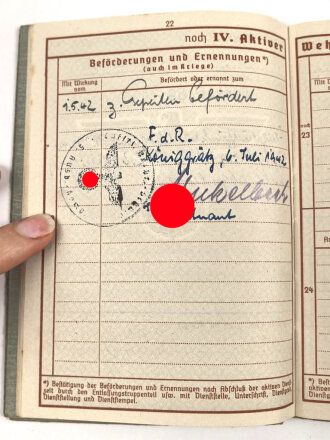 22
noch IV. Aktiver
Beförderungen und Ernennungen*)
(auch im Kriege)
Mit Wirkung vom
Befördert oder ernannt zum
1.5.42 z. Gefreiten befördert
F.d.R.
Königgrätz, 6. Juli 1942
*) Bestätigung der Beförderungen und Ernennungen nach Abschluß der aktiven Dienst-
zeit durch den Entlassungstruppenteil usw. mit Dienststelle, Unterschrift, Dienstgrad,
Dienststellung und Dienststempel.
Weh
noch
23
24